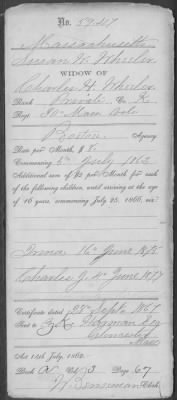 No. 59,417
Massachusetts
Susan W. Wheeler
WIDOW OF
Charles H. Wheeler
Rank Private Co. K
Regt 30th Mass Vols
Boston, Agency
Rate per Month, $8.
Commencing 5th July 1862
Additional sum of $2 per Month for each
of the following children, until arriving at the age
of 16 years, commencing July 25, 1866, viz:
16th June
Charles 4th June 1877
Certificate dated 28th Sept 1867
Sent to
Gloucester
Mass
Act 14th July, 1862.
Book Vol. 3 Page 67
Clerk.